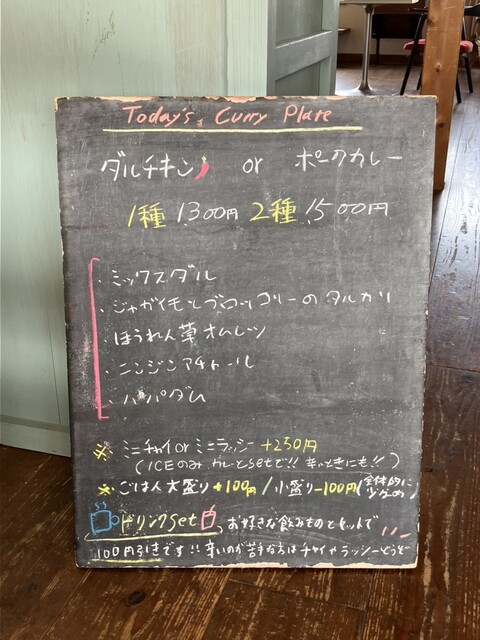 Today's Curry Plate
ダルチキン or ポークカレー
1種 1300円 2種 1500円
・ミックスダル
・ジャガイモとブロッコリーのタルカリ
ほうれん草オムレツ
・ニンジンアチャール
・パパダム
※ミニチャイ or ミニラッシー +250円
(ICEのみ カレーとsetで!! 辛いときにも!!)
※ごはん大盛り+100円/小盛り-100円(全体的に少なめ)
ドリンクset お好きな飲みものとセットで
100円引きです!! 辛いのが苦手な方はチャイやラッシーどうぞ